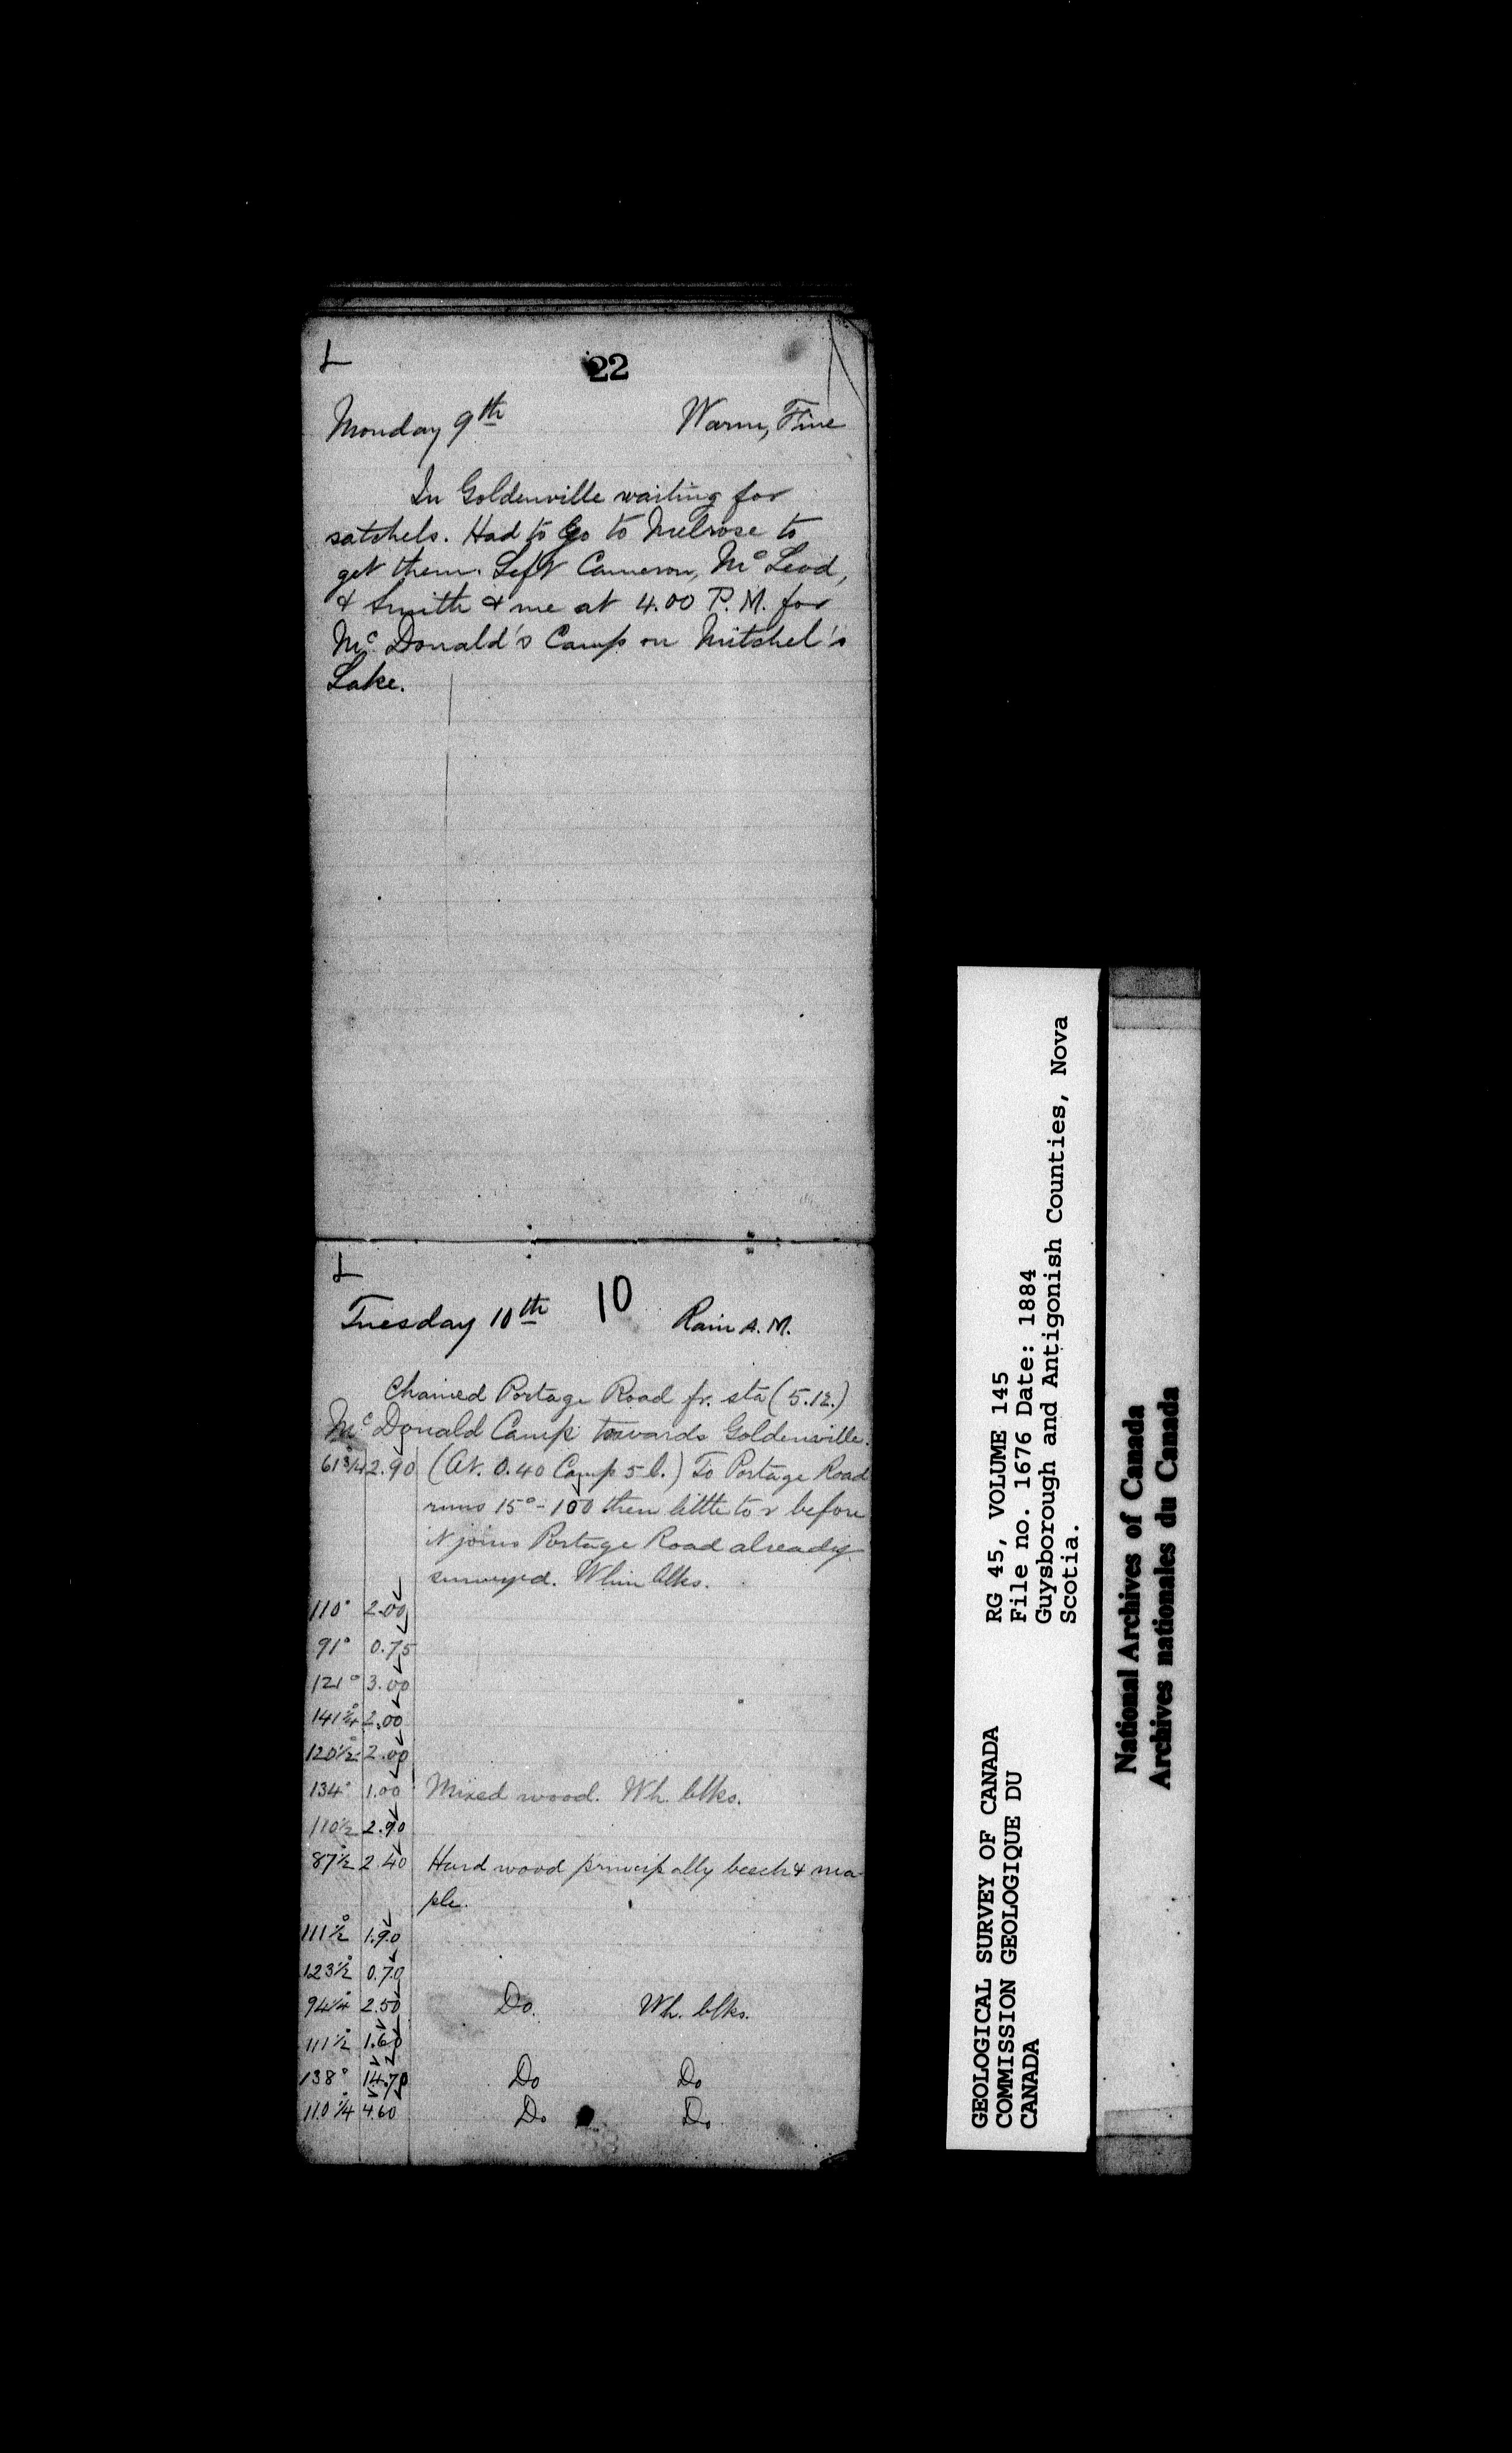 L
22
Monday 9th Warm, Fine
In Goldenville waiting for
satchels. Had to Go to Melrose to
get them. Left Cameron, Mc Leod,
& Smith & me at 4.00 P.M. for
Mc Donald's Camp on Mitchel's
Lake.
L
Tuesday 10th 10 Rain A.M.
Chained Portage Road fr. sta (5.12.)
Mc Donald Camp towards Goldenville.
61 3/4 2.90 (At. 0.40 Camp 5 l.) To Portage Road
runs 15° - 100 then little to r before
it joins Portage Road already
surveyed. Whin blks.
110° 2.00
91° 0.75
121° 3.00
141 3/4° 2.00
120 1/2° 2.00
134° 1.00 Mixed wood. Wh. blks.
110 1/2 2.90
87 1/2° 2.40 Hard wood principally beech & ma-
ple.
111 1/2° 1.90
123 1/2° 0.70
94 1/4° 2.50 Do. Wh. blks.
111 1/2° 1.60
138° 14.70 Do Do
110 1/4° 4.60 Do Do
GEOLOGICAL SURVEY OF CANADA
COMMISSION GEOLOGIQUE DU
CANADA
RG 45, VOLUME 145
File no. 1676 Date: 1884
Guysborough and Antigonish Counties, Nova
Scotia.
National Archives of Canada
Archives nationales du Canada